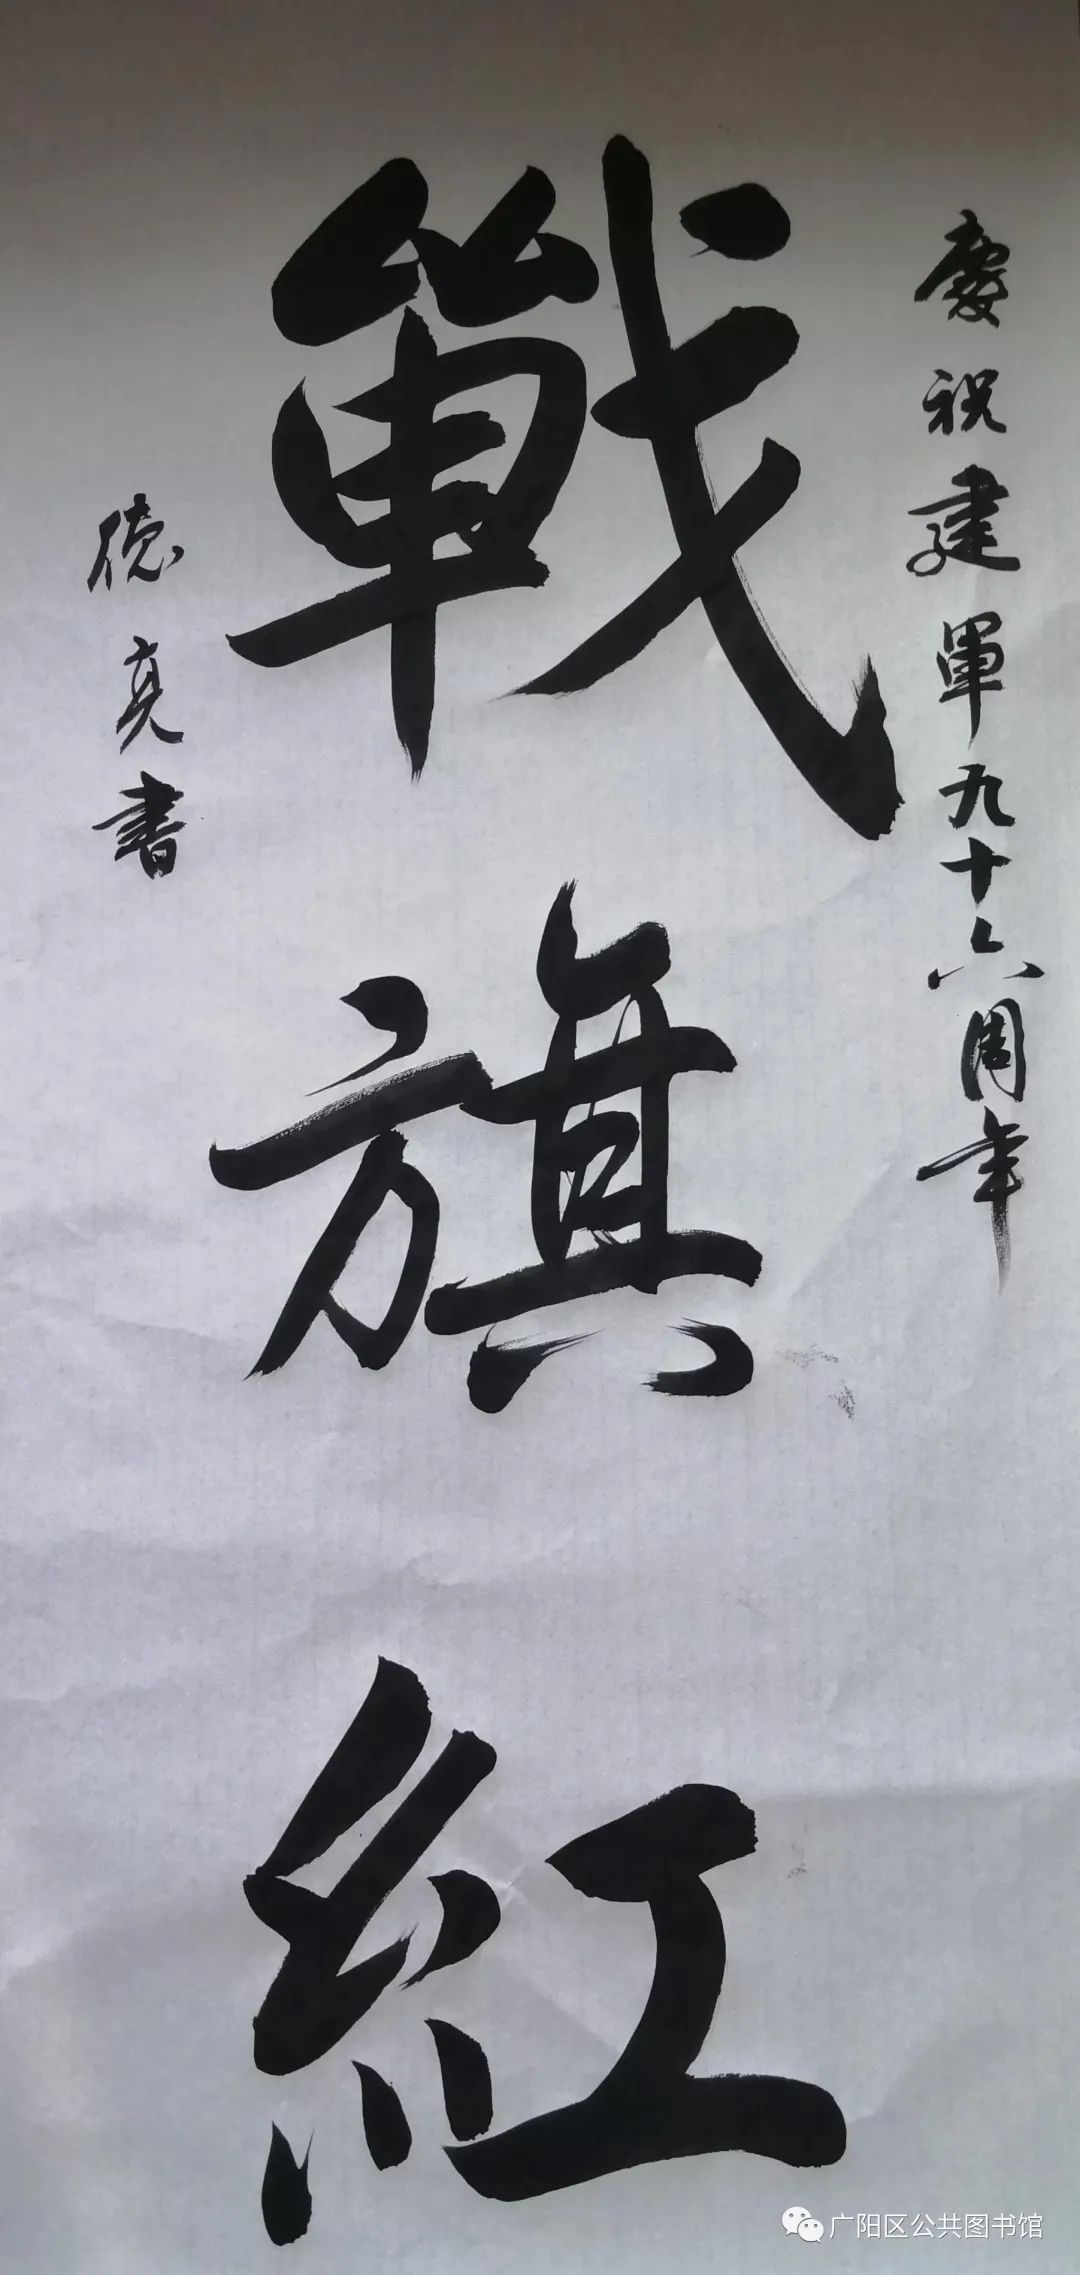 慶祝建軍九十六周年
戰旗紅
德亮書
广阳区公共图书馆